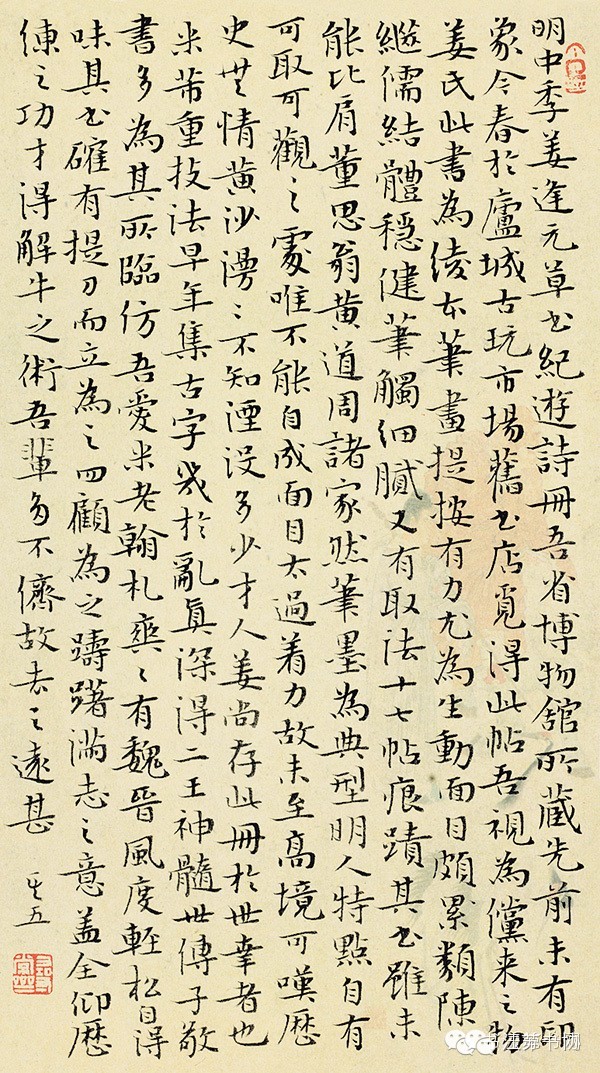 明中季姜逢元草书紀遊詩冊吾省博物館所藏先前未有印
象今春於廬城古玩市場舊书店覓得此帖吾視為儻来之物
姜氏此書為綾本筆畫提按有力尤為生動面目頗累類陳
繼儒結體穩健筆觸细膩又有取法十七帖痕蹟其书雖未
能比肩董思翁黄道周諸家然筆墨為典型明人特點自有
可取可觀之處唯不能自成面目太過着力故未至高境可嘆歷
史無情黄沙漫漫不知湮没多少才人姜尚存此冊於世幸者也
米芾重技法早年集古字幾於亂真深得二王神髓世傳子敬
書多為其所臨仿吾愛米老翰札奕奕有魏晋風度輕松自得
味其书確有提刀而立為之四顧為之躊躇滿志之意盖全仰歷
練之功才得解牛之術吾輩多不儕故去之遠甚